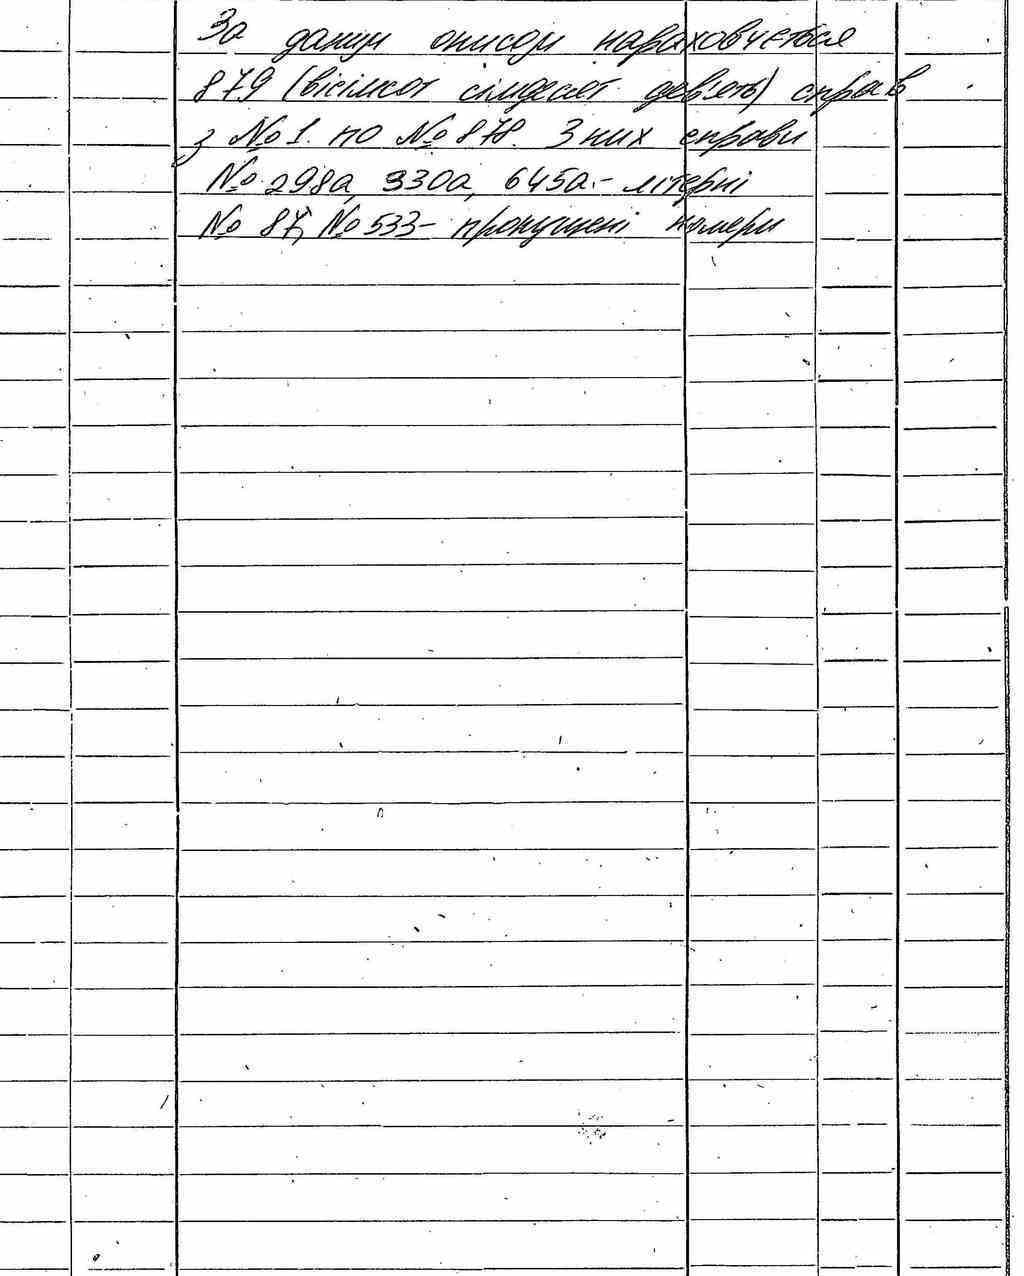 За даним описом нараховується
879 (вісімсот сімдесят дев'ять) справ
з №1 по №878. З них справи
№ 298а, 330а, 645а - літерні
№ 87, №533 - пропущені номери